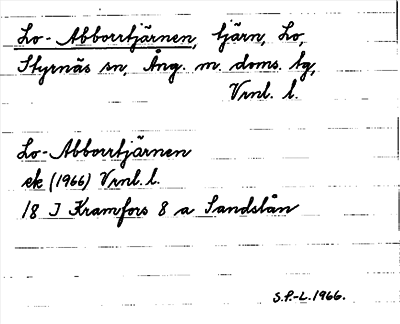 Lo-Abborrtjärnen, tjärn, Lo,
Styrnäs sn, Ång. m. doms. tg,
Vrnl. l.
Lo-Abborrtjärnen
ek (1966) Vrnl. l.
18 I Kramfors 8 a Sandslån
S.P.-L. 1966.